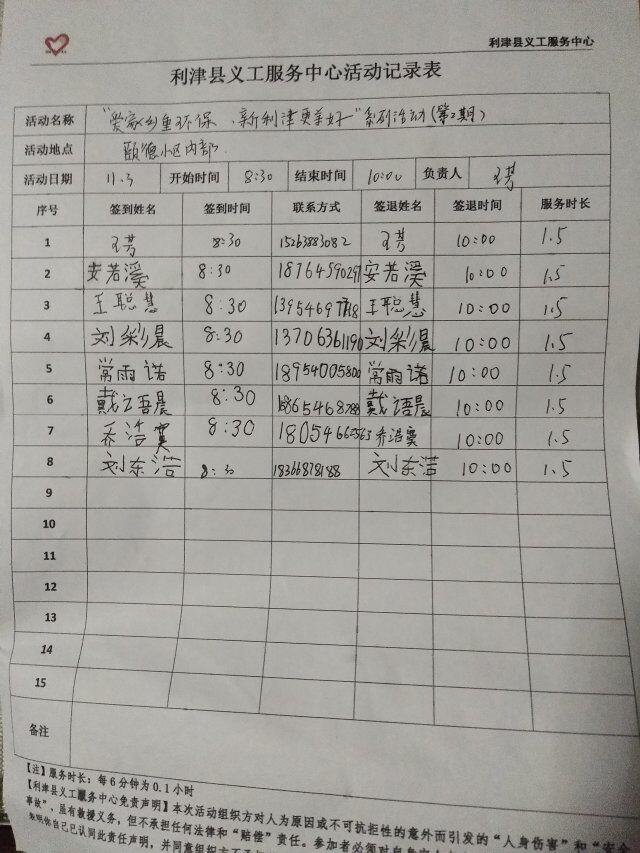 利津县义工服务中心
利津县义工服务中心活动记录表
活动名称 "爱家乡重环保、新利津更美好"系列活动(第2期)
活动地点 颐德小区内部
活动日期 11.3 开始时间 8:30 结束时间 10:00 负责人 王芳
序号 签到姓名 签到时间 联系方式 签退姓名 签退时间 服务时长
1 王芳 8:30 15263883082 王芳 10:00 1.5
2 安若溪 8:30 18764590297 安若溪 10:00 1.5
3 王聪慧 8:30 王聪慧 10:00 1.5
4 刘彩晨 8:30 13706361190 刘彩晨 10:00 1.5
5 常雨诺 8:30 18954005800 常雨诺 10:00 1.5
6 戴语晨 8:30 戴语晨 10:00 1.5
7 乔浩 8:30 乔浩 10:00 1.5
8 刘东浩 8:30 18366878188 刘东浩 10:00 1.5
9
10
11
12
13
14
15
备注
【注】服务时长:每6分钟为0.1小时
【利津县义工服务中心免责声明】本次活动组织方对人为原因或不可抗拒性的意外而引发的"人身伤害"和"安全
事故",虽有救援义务,但不承担任何法律和"赔偿"责任。参加者必须对自身安
表明你自己已认同此责任声明,并同意组织方不承